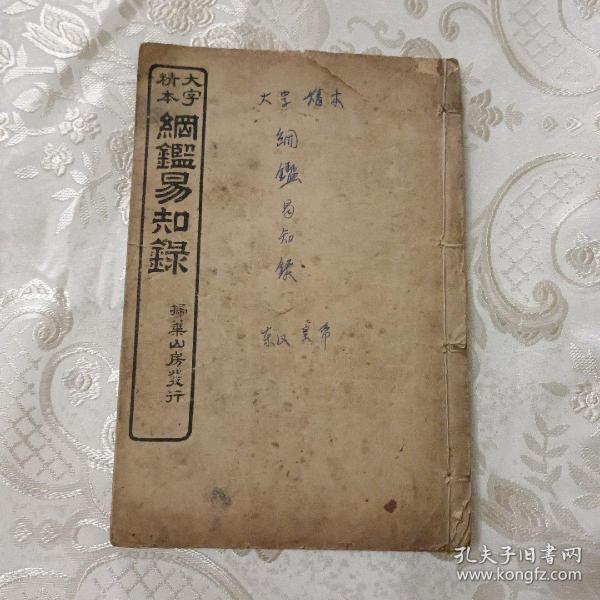 大字
精本
綱鑑易知錄
掃葉山房發行
大字 精本
綱鑑易知錄
东汉 皇帝
孔夫子旧书网
www.kongfz.com